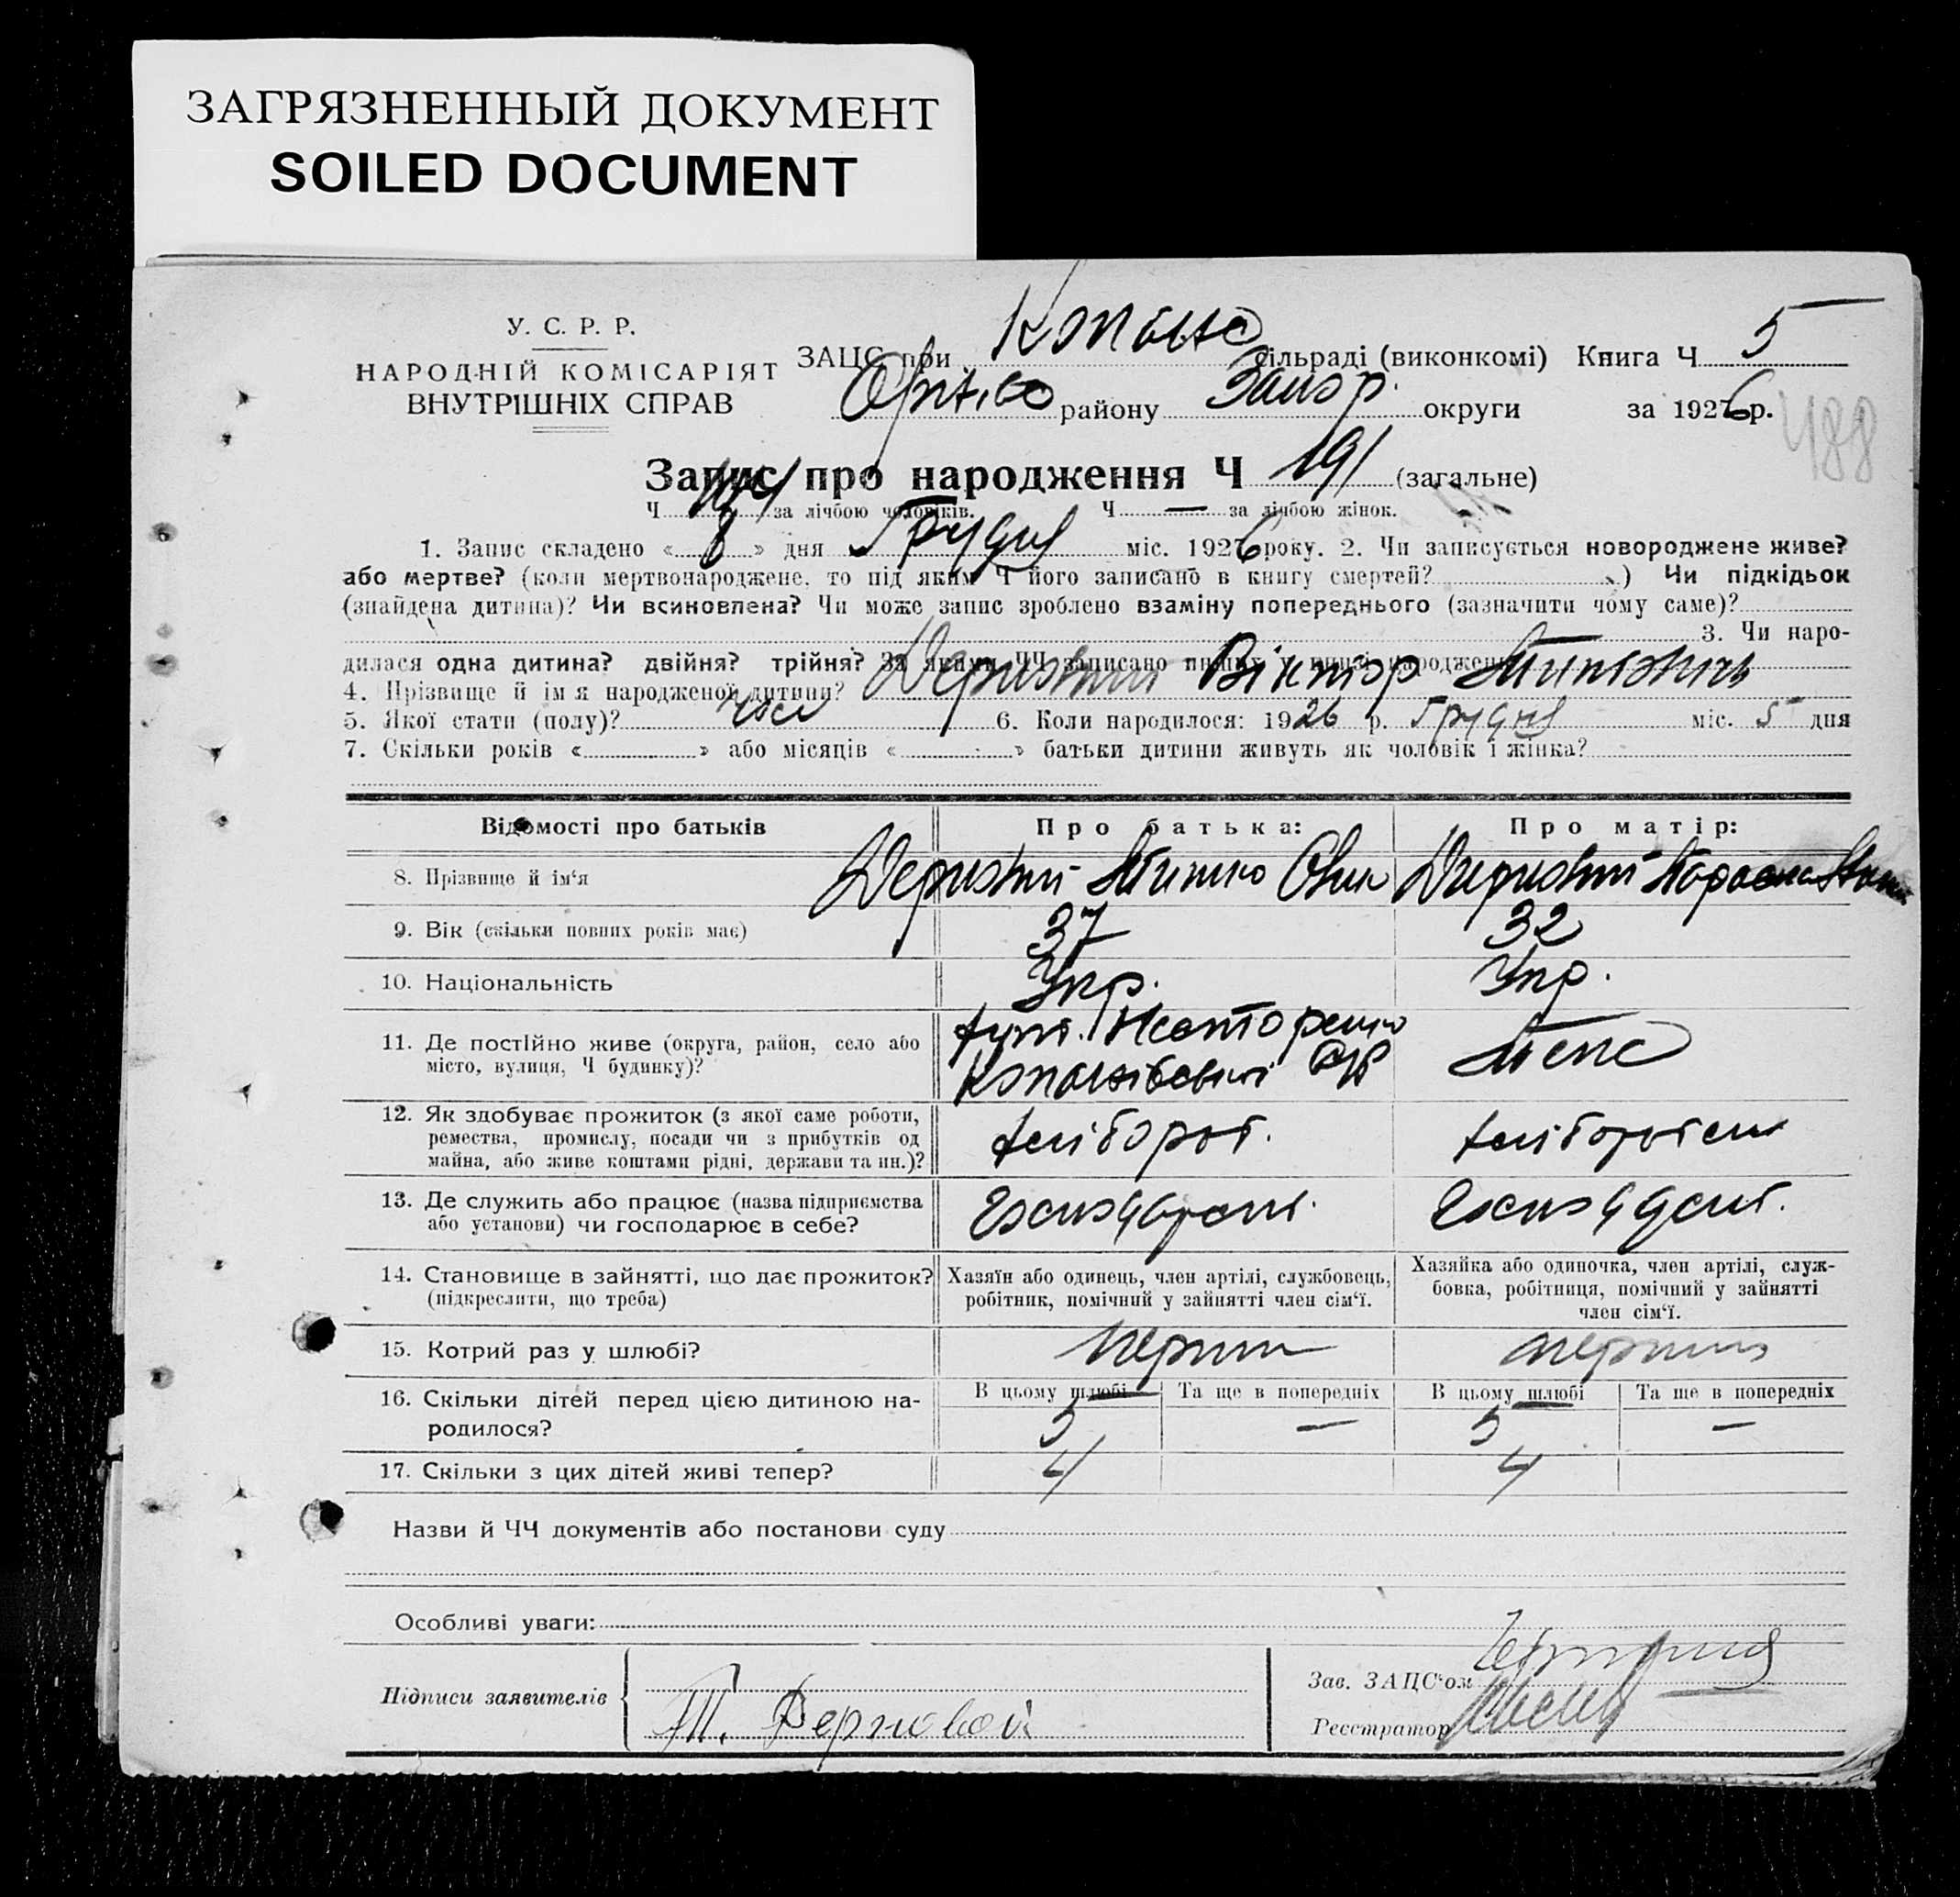 ЗАГРЯЗНЕННЫЙ ДОКУМЕНТ
SOILED DOCUMENT
У. С. Р. Р.
НАРОДНІЙ КОМІСАРІЯТ
ВНУТРІШНІХ СПРАВ
ЗАЦС при сільраді (виконкомі) Книга Ч 5
району Запор. округи за 1926 р.
488
Запис про народження Ч 191 (загальне)
Ч за лічбою чоловіків. Ч — за лічбою жінок.
1. Запис складено « 8 » дня Грудня міс. 1926 року. 2. Чи записується новороджене живе?
або мертве? (коли мертвонароджене, то під яким Ч його записано в книгу смертей? ) Чи підкідьок
(знайдена дитина)? Чи всиновлена? Чи може запис зроблено взаміну попереднього (зазначити чому саме)?
3. Чи наро-
дилася одна дитина? двійня? трійня? За якими ЧЧ записано инших у книзі народжень
4. Прізвище й ім'я народженої дитини? Віктор
5. Якої стати (полу)? чол 6. Коли народилося: 1926 р. Грудня міс. 5 дня
7. Скільки років « » або місяців « » батьки дитини живуть як чоловік і жінка?
Відомості про батьків Про батька: Про матір:
8. Прізвище й ім'я
9. Вік (скільки повних років має) 37 32
10. Національність Укр. Укр.
11. Де постійно живе (округа, район, село або
місто, вулиця, Ч будинку)?
12. Як здобуває прожиток (з якої саме роботи, хлібороб.
ремества, промислу, посади чи з прибутків од
майна, або живе коштами рідні, держави та ин.)?
13. Де служить або працює (назва підприємства
або установи) чи господарює в себе?
14. Становище в зайнятті, що дає прожиток? Хазяїн або одинець, член артілі, службовець, Хазяйка або одиночка, член артілі, служ-
(підкреслити, що треба) робітник, помічний у зайнятті член сім'ї. бовка, робітниця, помічний у зайнятті
член сім'ї.
15. Котрий раз у шлюбі?
16. Скільки дітей перед цією дитиною на- В цьому шлюбі Та ще в попередніх В цьому шлюбі Та ще в попередніх
родилося? 5 — 5 —
17. Скільки з цих дітей живі тепер? 4 4
Назви й ЧЧ документів або постанови суду
Особливі уваги:
Зав. ЗАЦС'ом
Підписи заявителів
Т. Дерновой
Реєстратор